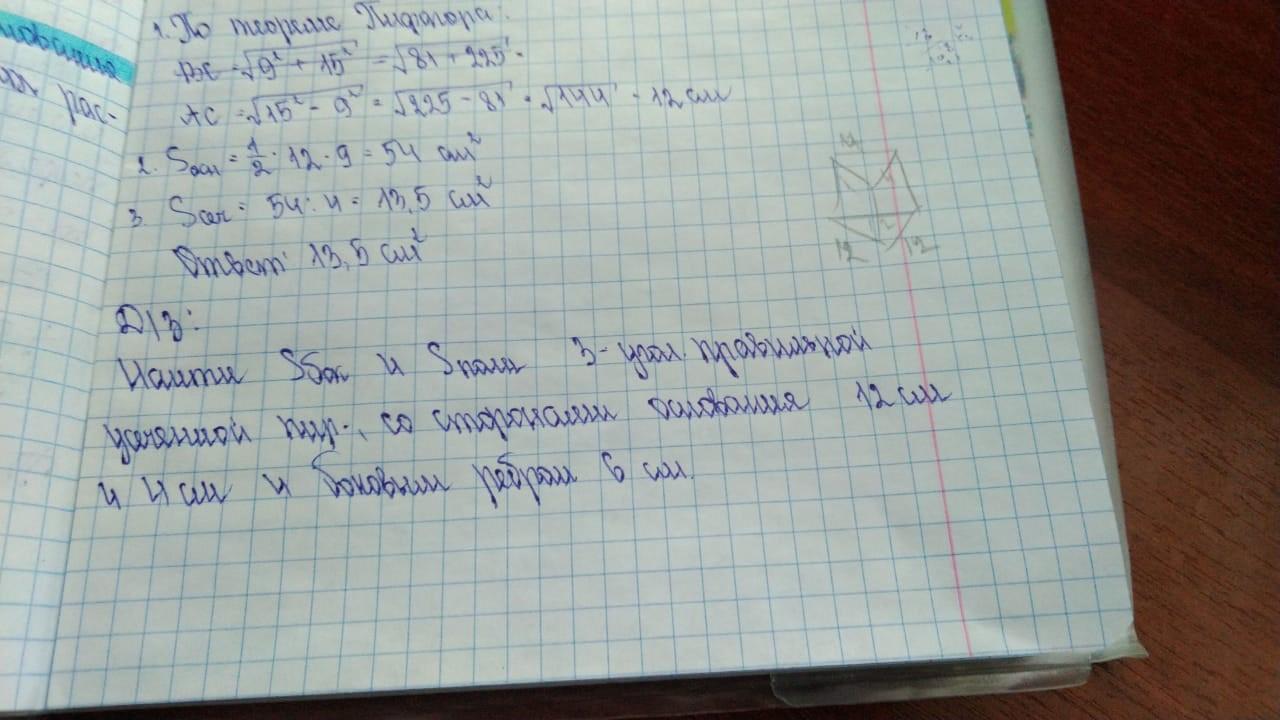 нования
рас-
1. По теореме Пифагора:
ВС = √9² + 15² = √81 + 225
АС = √15² - 9² = √225 - 81 = √144 = 12 см
2. Sосн = 1/2 · 12 · 9 = 54 см²
3 Sсеч = 54 : 4 = 13,5 см²
Ответ: 13,5 см²
Д/З:
Найти Sбок и Sполн 3-угол. правильной
усеченной пир., со сторонами основания 12 см
и 4 см и боковым ребром 6 см.
12 12